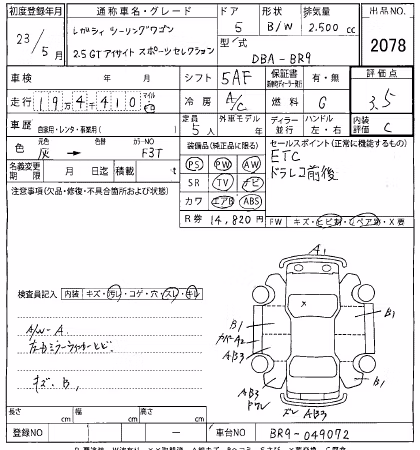 初度登録年月 通称車名・グレード ドア 形状 排気量 出品NO.
23年/5月 レガシィ ツーリングワゴン 5 B/W 2.500cc
2.5GT アイサイト スポーツセレクション 型式 DBA-BR9 2078
車検 年 月 シフト 5AF 保証書 有・無 評価点
走行 19万4千410 マイル km 冷房 A/C 燃料 G 3.5
車歴 自家用・レンタ・事業用( ) 定員 5人 外車モデル 年 ディーラー 並行 ハンドル 左・右 内装評価 C
色 元色 灰 → 色替 カラーNO F3T 装備品(純正品に限る) セールスポイント(正常に機能するもの)
PS PW AW ETC
名義変更期限 月 日迄 積載 t SR TV ナビ ドラレコ前後
注意事項(欠品・修復・不具合箇所および状態) カワ エアB ABS
R券 14,820円 FW キズ・ヒビ割・リペア跡・X要
A1
検査員記入 内装 キズ・汚レ・コゲ・穴・スレ・キレ
A/W-A
キズ、B,
B1
A2
AB3
B1
AB3
B1
AB3
長さ cm 幅 cm 高さ cm
登録NO 車台NO BR9-049072